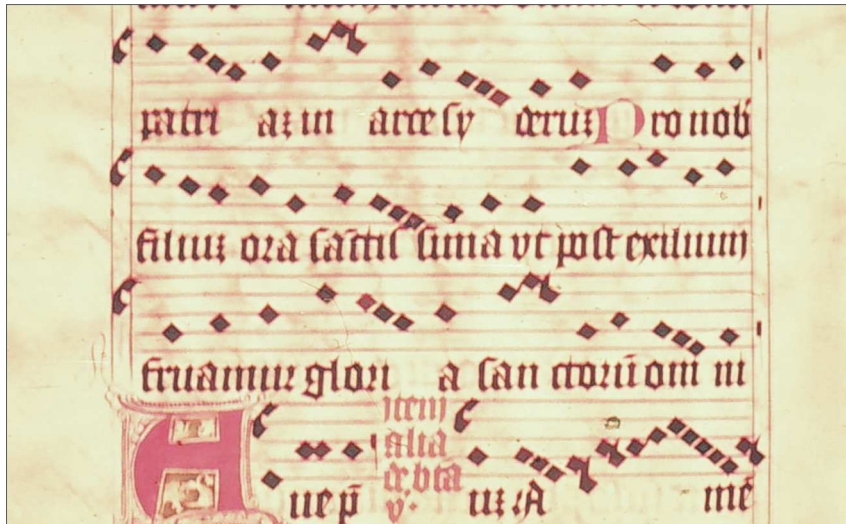 patri az in arce sy deruz Pro nob
filiuz ora sactis sima vt post exilium
fruamur glori a san ctorū om ni
Aue p̄
item
alia
de btā
v.
uz. A mē